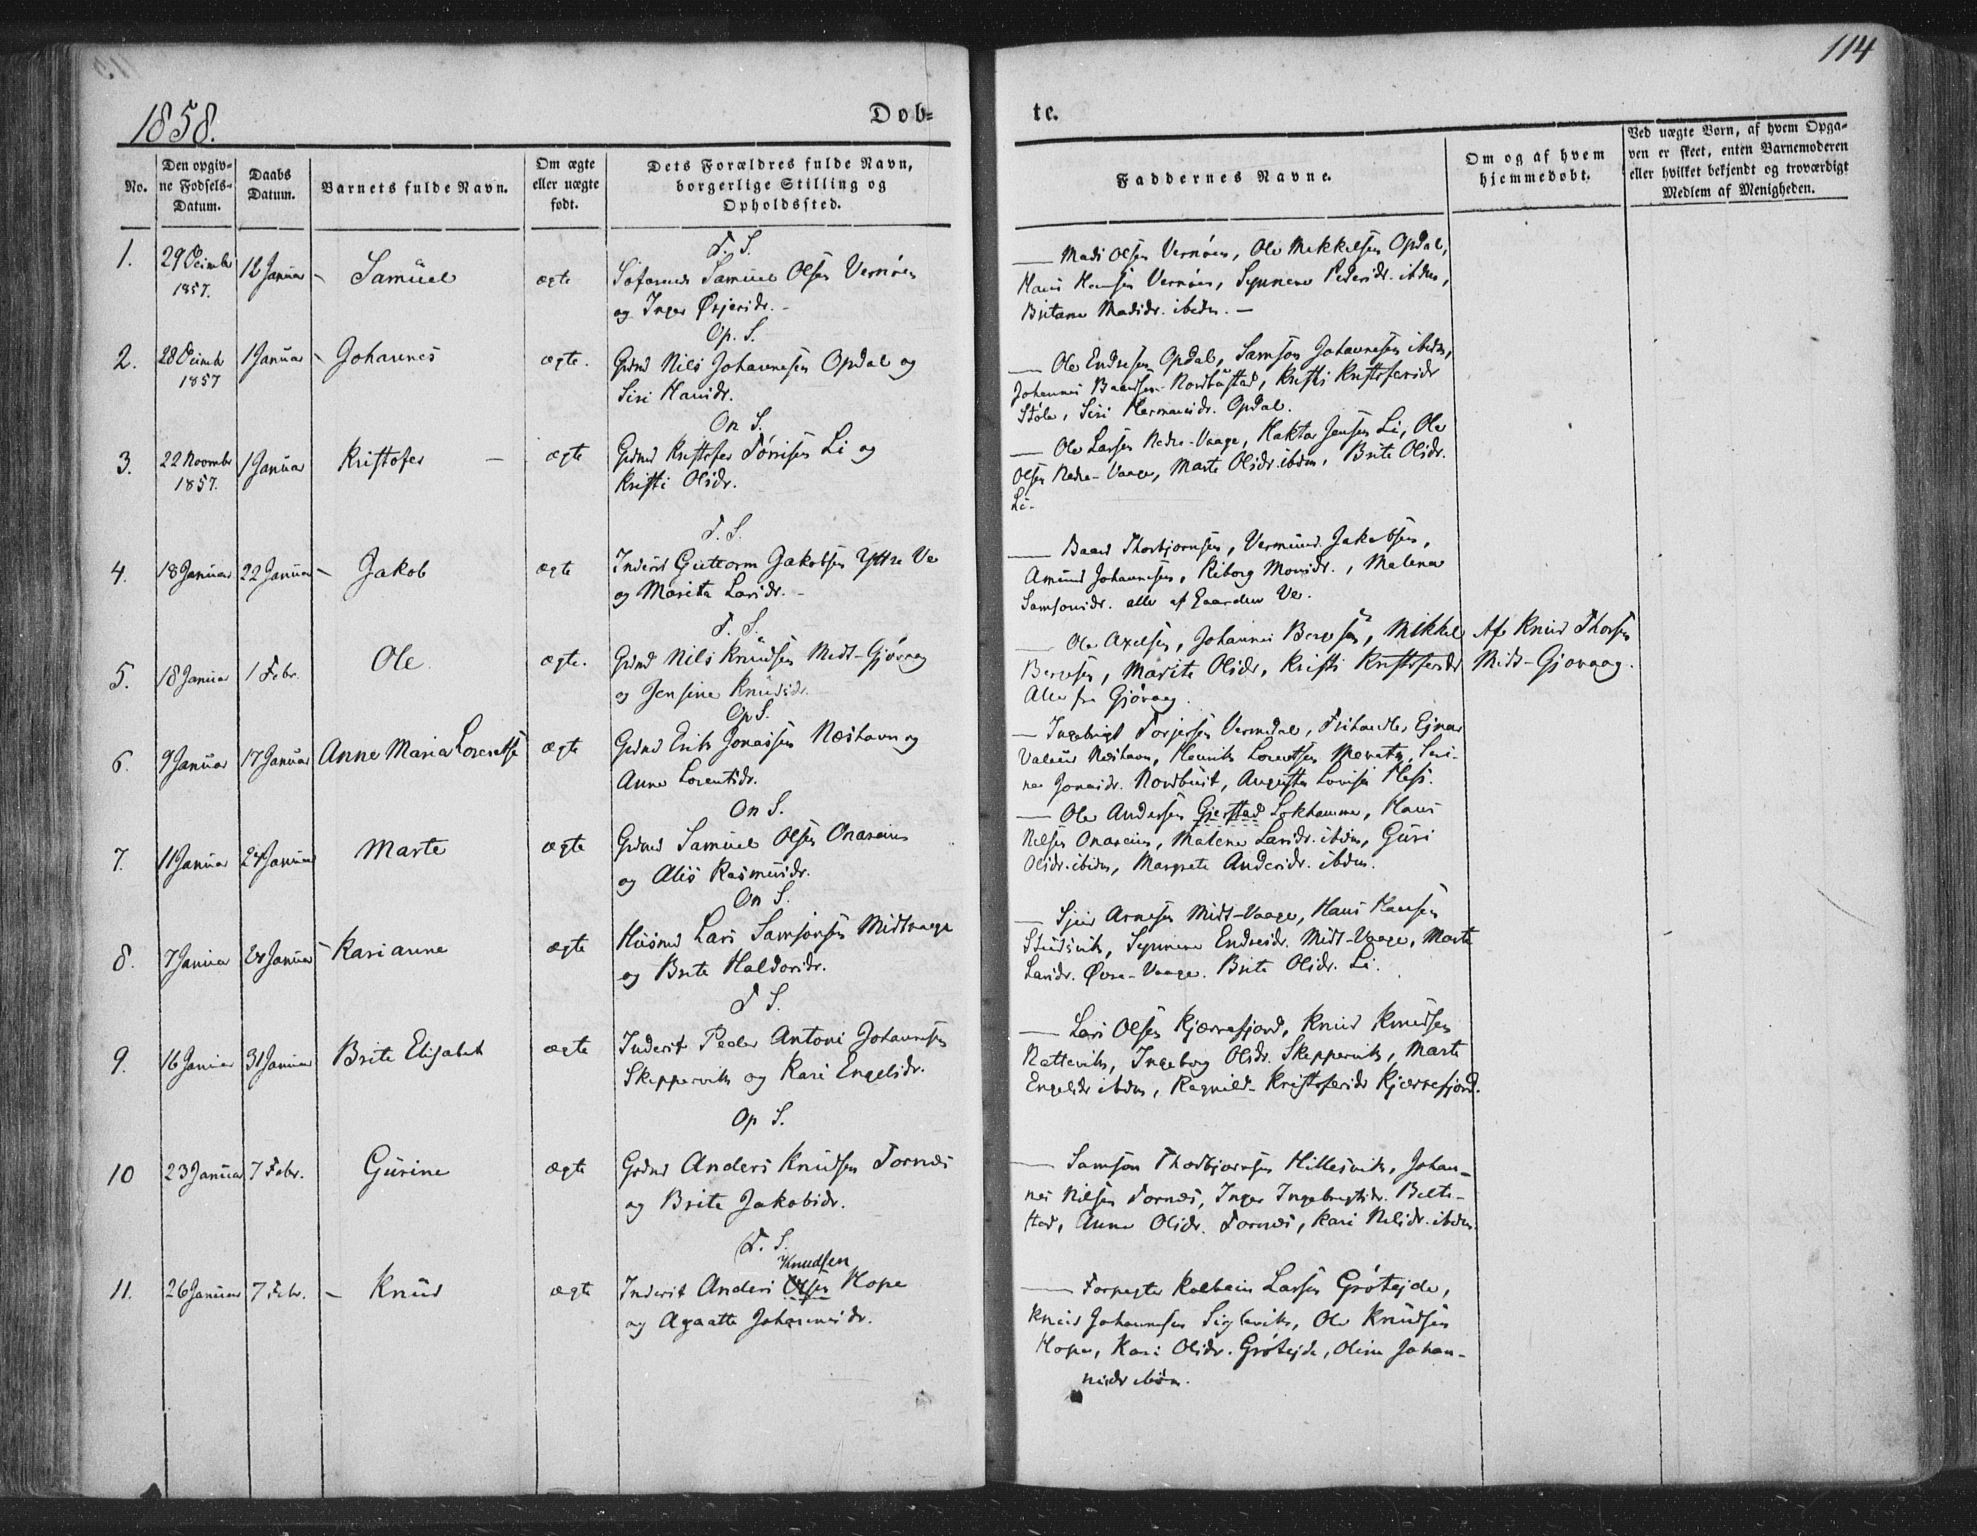 114
1858.
Døb=
te.
No.
Den opgiv-
ne Fødsels-
Datum.
Daabs
Datum.
Barnets fulde Navn.
Om ægte
eller uægte
født.
Dets Forældres fulde Navn,
borgerlige Stilling og
Opholdssted.
Faddernes Navne.
Om og af hvem
hjemmedøbt.
Ved uægte Børn, af hvem Opga-
ven er skeet, enten Barnemoderen
eller hvilket bekjendt og troværdigt
Medlem af Menigheden.
T. S.
1. 29 Decimbr 12 Januar – Samuel ægte Søfarende Samuel Olsen Vernøen
1857. og Inger Ørjersdr. –
— Mads Olsen Vernøen, Ole Mikkelsen Opdal,
Hans Hansen Vernøen, Synneve Pedersdr. ibdm,
Britane Madsdr. ibidm. —
Op. S.
2. 28 Decimbr 1 Januar – Johannes ægte. Grdmd Nils Johannesen Opdal og
1857 Siri Hansdr.
— Ole Endresen Opdal, Samson Johannesen ibidm,
Johannes Baardsen Nordbustad, Kristi Kristofersdr
Støle, Siri Hermansdr. Opdal.
On S.
3. 22 Novembr 1 Januar Kristofer – ægte Grdmd Kristofer Tørrisen Li og
1857. Kristi Olsdr.
— Ole Larsen Nedre-Vaage, Haktor Jensen Li, Ole
Olsen Nedre-Vaage, Marte Olsdr. ibdm, Brite Olsdr.
Li.
T. S.
4. 18 Januar 22 Januar – Jakob ægte Inderst Guttorm Jakobsen Yttre Ve
og Marita Larsdr. –
— Baard Thorbjørnsen, Vermund Jakobsen,
Amund Johannesen, Kiborg Monsdr., Malena
Samsonsdr. alle af Gaarden Ve.
T. S.
5. 18 Januar 1 Febr. Ole ægte. Grdmd Nils Knudsen Midt-Gjøvaag
og Jensine Knudsdr.
— Ole Axelsen, Johannes Bergesen, Mikkel
Bergesen, Marite Olsdr, Kristi Kristofersdr
Alle fra Gjøvaag.
Af Knud Thorsen
Midt-Gjøvaag.
Op S.
6. 9 Januar 17 Januar Anne Maria Lorentse ægte Grdmd Erik Jonassen Neshavn og
Anne Lorentsdr.
— Ingebrigt Torjersen Vermdal, Frihandler Ejnar
Valeur Neshavn, Henrik Lorentsen
Jonasdr. Nordhuit, Augusta Lovise Hess.
On S.
7. 11 Januar 24 Januar Marte ægte Grdmd Samuel Olsen Onareim
og Alis Rasmusdr.
— Ole Andersen Gjerstad Lokhamme, Hans
Nilsen Onareim, Malene Larsdr. ibidm, Guri
Olsdr. ibidm, Margrete Andersdr. ibidm.
On S.
8. 7 Januar 24 Januar – Karianne ægte Husmd Lars Samsonsen Midtvaage
og Brite Haldorsdr.
— Sjur Arnesen Midt-Vaage, Hans Hansen
Studsvik, Synneve Endresdr. Midt-Vaage, Marte
Larsdr. Øvre-Vaage. Brite Olsdr. Li.
T S.
9. 16 Januar 31 Januar Brite Elisabet ægte Inderst Peder Antoni Johannesen
Skeppervik og Kari Engelsdr.
— Lars Olsen Kjærrefjord, Knud Knudsen
Nattevik, Ingeborg Olsdr. Skeppervik, Marte
Engelsdr ibidm, Ragnild Kristofersdr Kjærrefjord.
Op S.
10 23 Januar 7 Febr. Gurine ægte Grdmd Anders Knudsen Tornæs
og Brite Jakobsdr.
— Samson Thorbjørnsen Hillesvik, Johan-
nes Nilsen Tornæs, Inger Ingebrigtsdr. Belte-
stad, Anne Olsdr. Tornæs, Kari Nilsdr. ibidm.
T. S.
Knudsen
11. 26 Januar 7 Febr. – Knud ægte Inderst Anders Olsen Hope
og Agaatte Johannesdr.
— Forpagter Kolbein Larsen Grøtejde,
Knud Johannesen Siglevik, Ole Knudsen
Hope, Kari Olsdr. Grøtejde, Oline Johan-
nesdr ibidm.